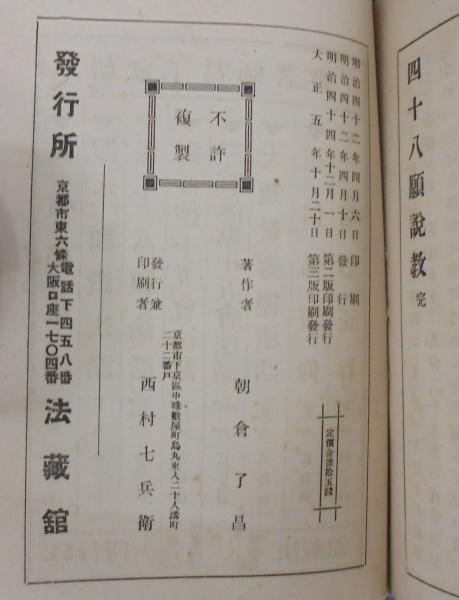 四十八願說教 完
明治四十二年四月六日 印刷
明治四十二年四月十日 發行
明治四十四年十二月一日 第二版印刷發行
大正五年十月二十日 第三版印刷發行
定價金參拾五錢
不許
複製
著作者 朝倉了昌
京都市下京區中珠數屋町烏丸東入二十人講町
二十二番戶
發行兼
印刷者 西村七兵衛
發行所
京都市東六條
電話下四五八番
大阪口座一七〇四番
法藏舘